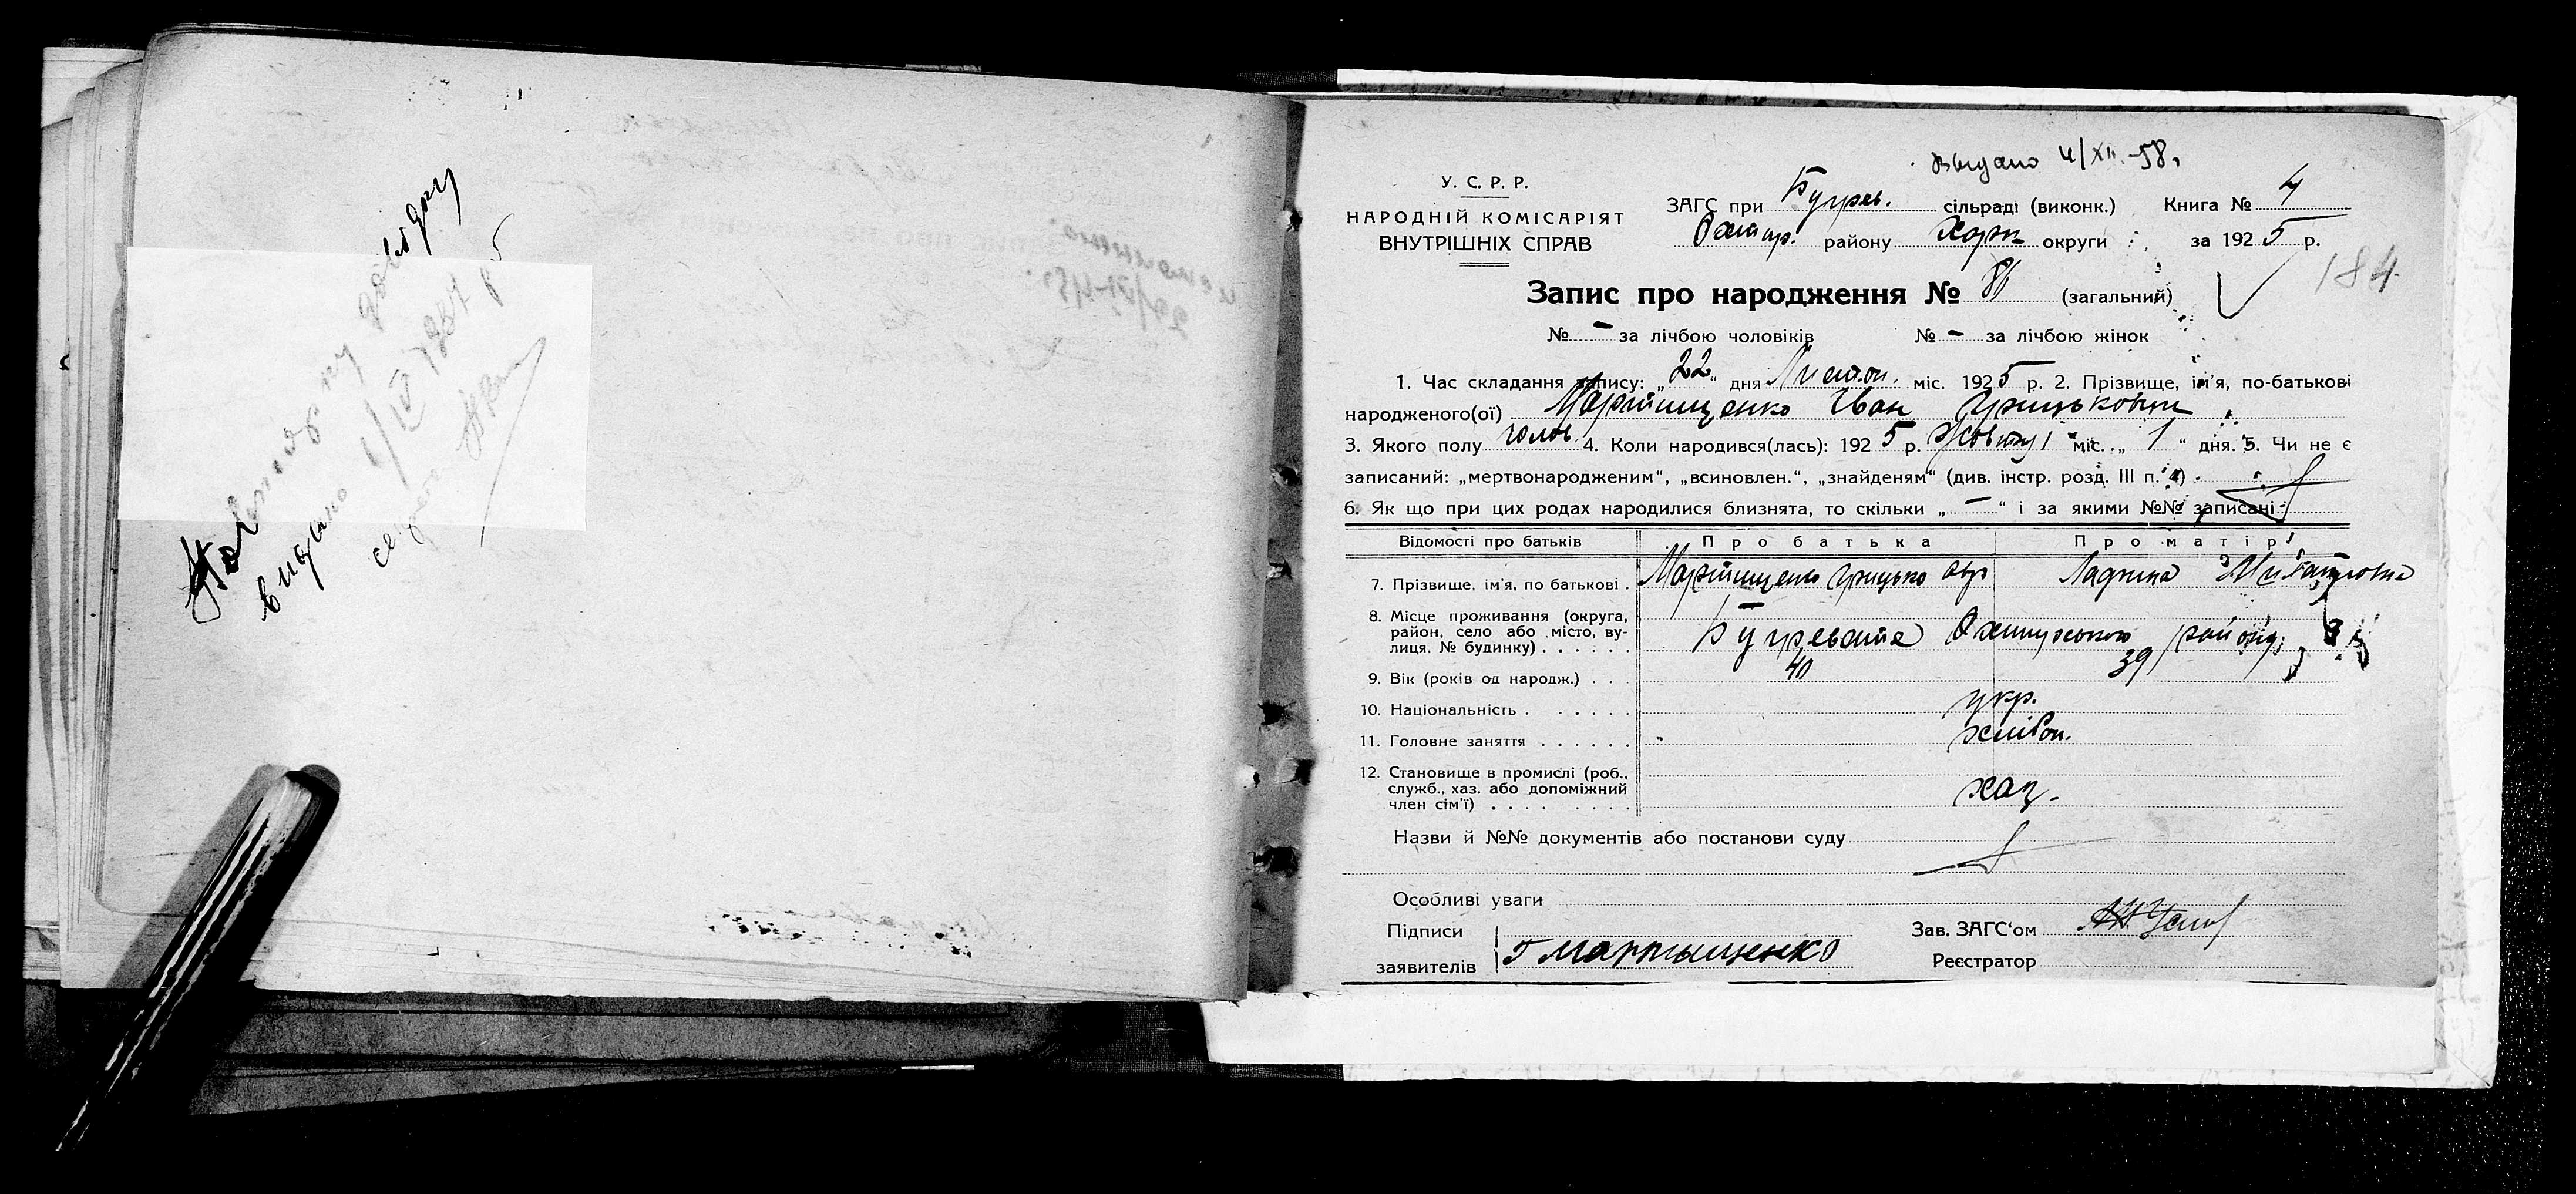 Повторну довідку
видано 1/IV 1984 р
Выдано 4/XII-58г
У. С. Р. Р.
НАРОДНІЙ КОМІСАРІЯТ
ВНУТРІШНІХ СПРАВ
ЗАГС при Бугрев. сільраді (виконк.) Книга № 4
Охтир. району Харк округи за 1925 р.
184
Запис про народження № 86 (загальний)
№ - за лічбою чоловіків № - за лічбою жінок
1. Час складання запису: „22“ дня Листоп. міс. 1925 р. 2. Прізвище, ім'я, по-батькові
народженого(ої) Мартищенко Іван Грицькович
3. Якого полу чолов. 4. Коли народився(лась): 1925 р. Жовтня міс. „1“ дня. 5. Чи не є
записаний: „мертвонародженим“, „всиновлен.“, „знайденям“ (див. інстр. розд. III п. 4)
6. Як що при цих родах народилися близнята, то скільки „—“ і за якими №№ записані
Відомості про батьків Про батька Про матір
7. Прізвище, ім'я, по батькові. Мартищенко Грицько
8. Місце проживання (округа,
район, село або місто, ву-
лиця, № будинку) Бугревате Охтирського району
9. Вік (років од народж.) 40 39
10. Національність укр.
11. Головне заняття хлібоп.
12. Становище в промислі (роб.,
служб., хаз. або допоміжний
член сім'ї) хаз.
Назви й №№ документів або постанови суду
Особливі уваги
Підписи
заявителів Г Мартыщенко
Зав. ЗАГС'ом
Реєстратор